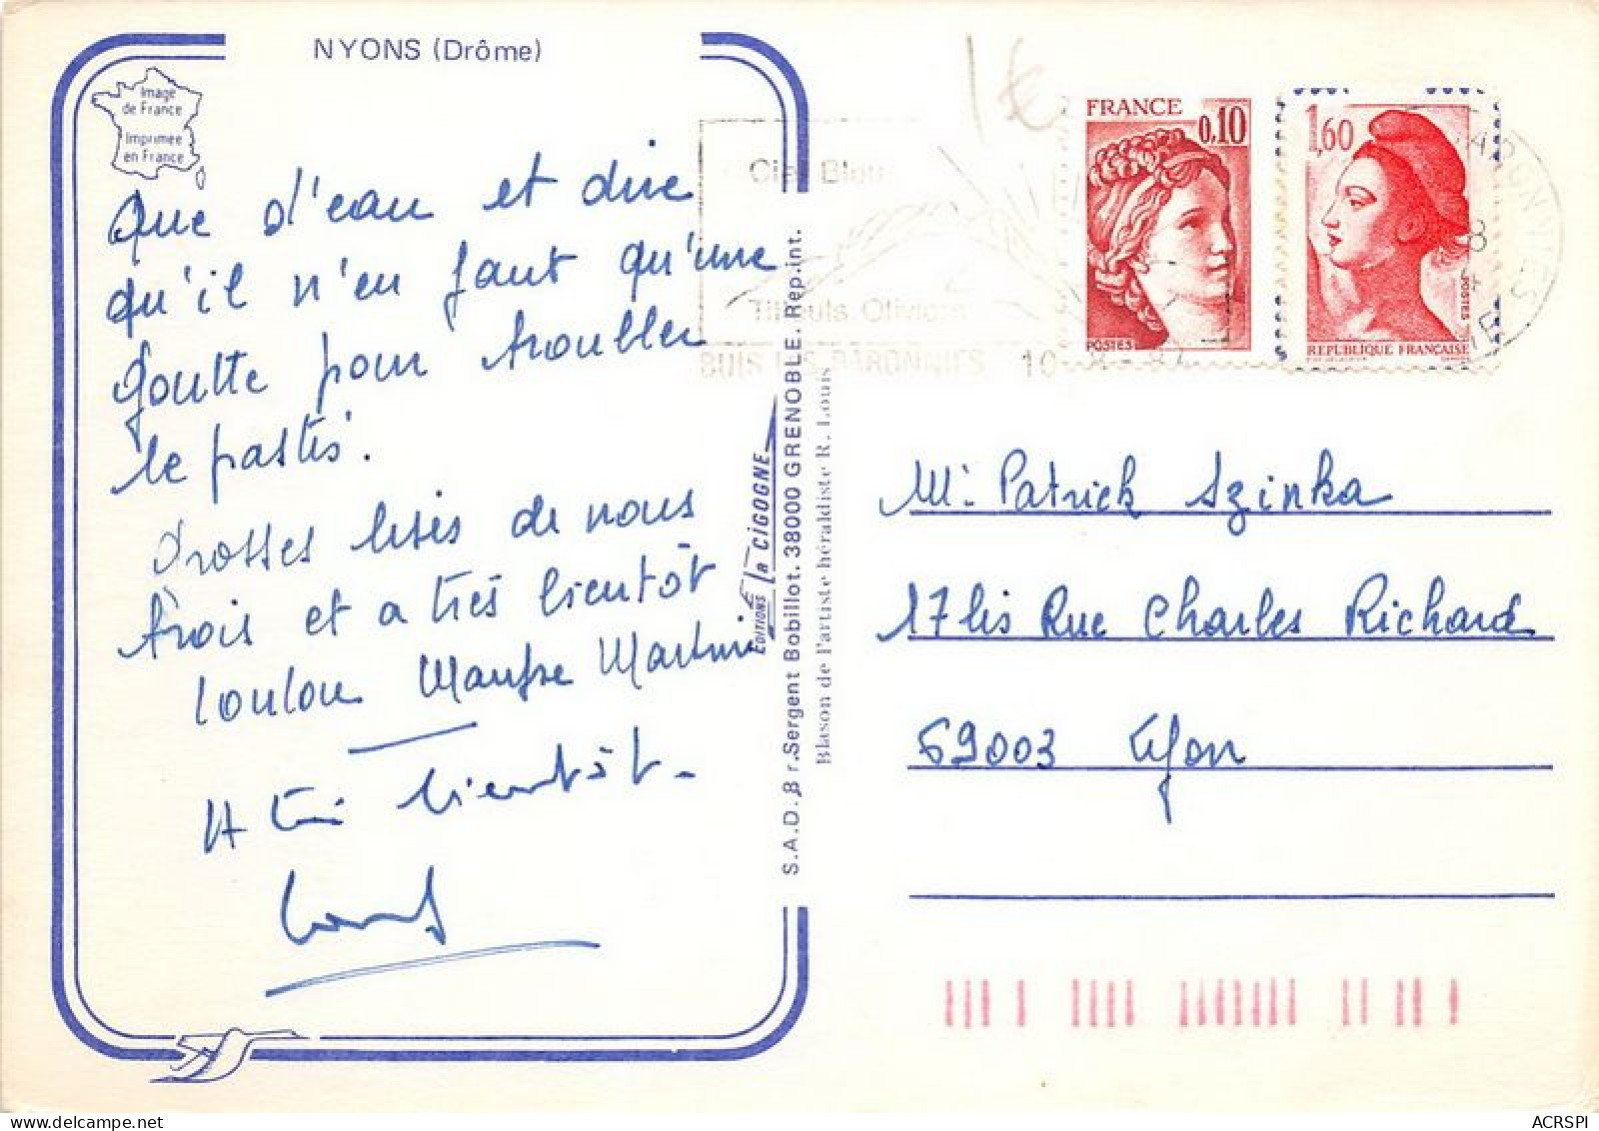 NYONS (Drôme)
Image
de France
Imprimée
en France
Que d'eau et dire
qu'il n'en faut qu'une
Goutte pour troubler
le pastis.
Grosses bises de nous
trois et a très bientôt
Loulou Manfre Martine
A très bientôt.
EDITIONS la CIGOGNE
S.A.D. 8 r. Sergent Bobillot. 38000 GRENOBLE. Rep.int.
Blason de l'artiste héraldiste R. Louis
1€
Ciel Bleu
Tilleuls. Oliviers
BUIS LES BARONNIES 10 - 8 - 87
FRANCE
0,10
POSTES
1,60
POSTES
REPUBLIQUE FRANÇAISE
Mr Patrick Szinka
17 bis Rue Charles Richard
69003 Lyon
ACRSPI